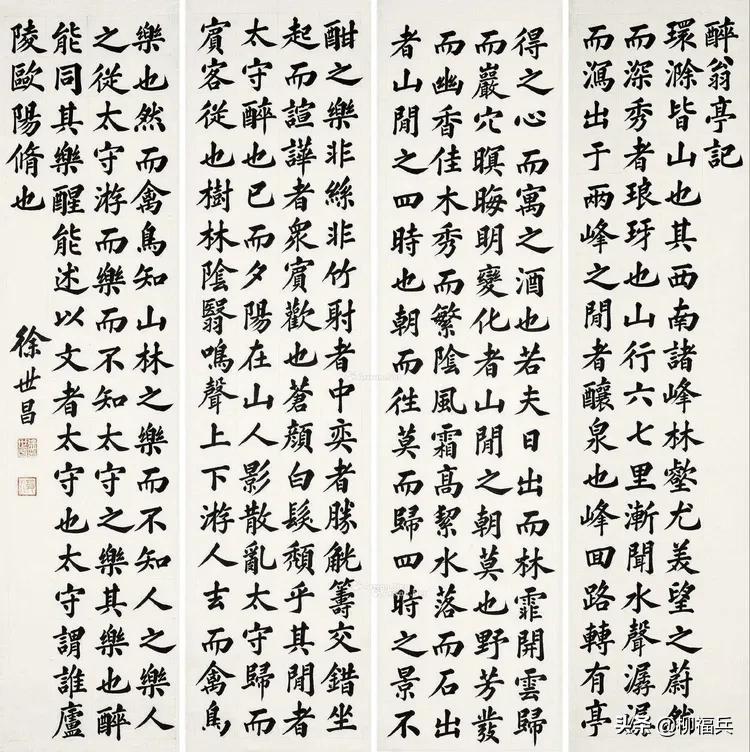 醉翁亭記
環滁皆山也其西南諸峰林壑尤美望之蔚然
而深秀者琅玡也山行六七里漸聞水聲潺
而瀉出于兩峰之閒者釀泉也峰回路轉有亭
得之心而寓之酒也若夫日出而林霏開雲歸
而巖穴暝晦明變化者山閒之朝莫也野芳發
而幽香佳木秀而繁陰風霜高絜水落而石出
者山閒之四時也朝而往莫而歸四時之景不
酣之樂非絲非竹射者中奕者勝觥籌交錯坐
起而諠譁者眾賓歡也蒼顏白髮頹乎其閒者
太守醉也已而夕陽在山人影散亂太守歸而
賓客從也樹林陰翳鳴聲上下游人去而禽鳥
樂也然而禽鳥知山林之樂而不知人之樂人
之從太守游而樂而不知太守之樂其樂也醉
能同其樂醒能述以文者太守也太守謂誰廬
陵歐陽脩也
徐世昌
头条 @柳福兵